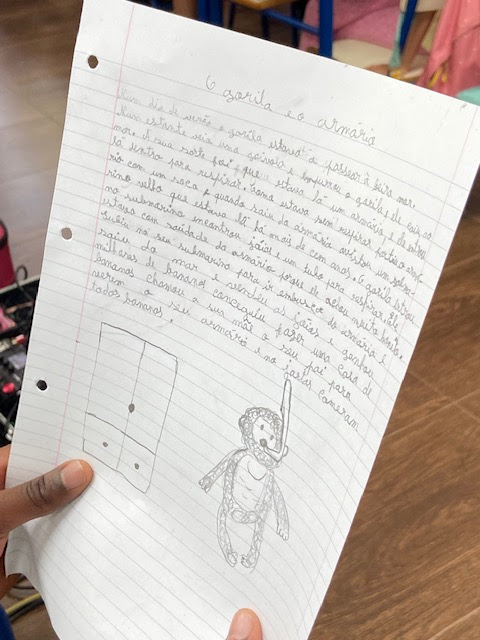 O gorila e o armário
Num dia de verão o gorila estava a passear à beira mar.
Num instante veio uma gaivota e empurrou o gorila e ele caiu ao
mar. A sua sorte foi que estava lá um armário e ele entrou
lá dentro para respirar. Como estava sem respirar partiu o armá-
rio com um soco e quando saiu do armário avistou um subma-
rino velho que estava lá há mais de cem anos. O gorila entrou
no submarino encontrou jóias e um tubo para respirar. Ele
estava com saudade do armário porque ele achou muito bonito.
Subiu no seu submarino para ir embora do armário e
saiu do mar e vendeu as jóias e ganhou
milhares de bananas conseguiu fazer uma casa de
bananas chamou a sua mãe e o seu pai para
verem o seu armário e no jantar comeram
todos bananas.